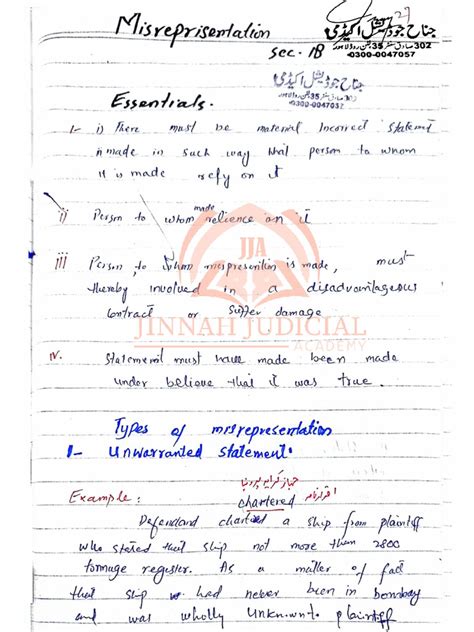 Misreprisentation
29
جناح جوڈیشل اکیڈمی
302 صادق سنٹر 35
0300-0047057
sec. 18
جناح جوڈیشل اکیڈمی
0300-0047057
Essentials.
1- i) There must be material Incorrect Statement
made in such way that person to whom
it is made rely on it
ii) Person to whom made relience on it
iii Person, to whom mispresention is made, must
thereby involved in a disadvantageous
contract or suffer damage
JJA
JINNAH JUDICIAL
ACADEMY
iv. Statement must have made been made
under believe that it was true.
Types of misrepresentation
1- Unwarranted Statement:
Example: chartered
Defendand charted a ship from plaintiff
who stated that ship not more than 2800
tonnage register. As a matter of fact
that ship had never been in bombay
and was wholly unknown to plaintiff